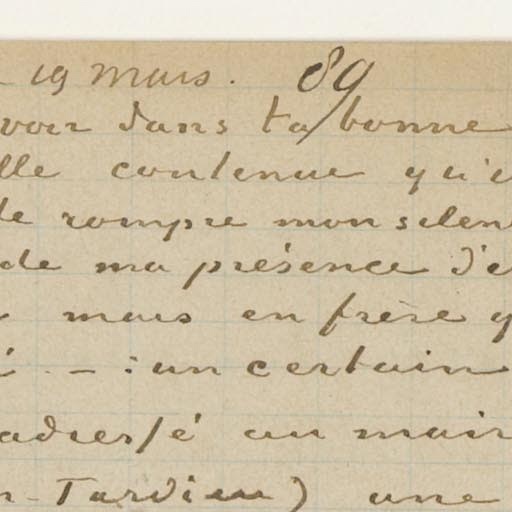 19 mars. 89
voir dans ta bonne
lle contenue qu'e
de rompre mon silen
de ma présence d'e
mais en frère q
é - : un certain
adressé au mair
n-Tardieu) une